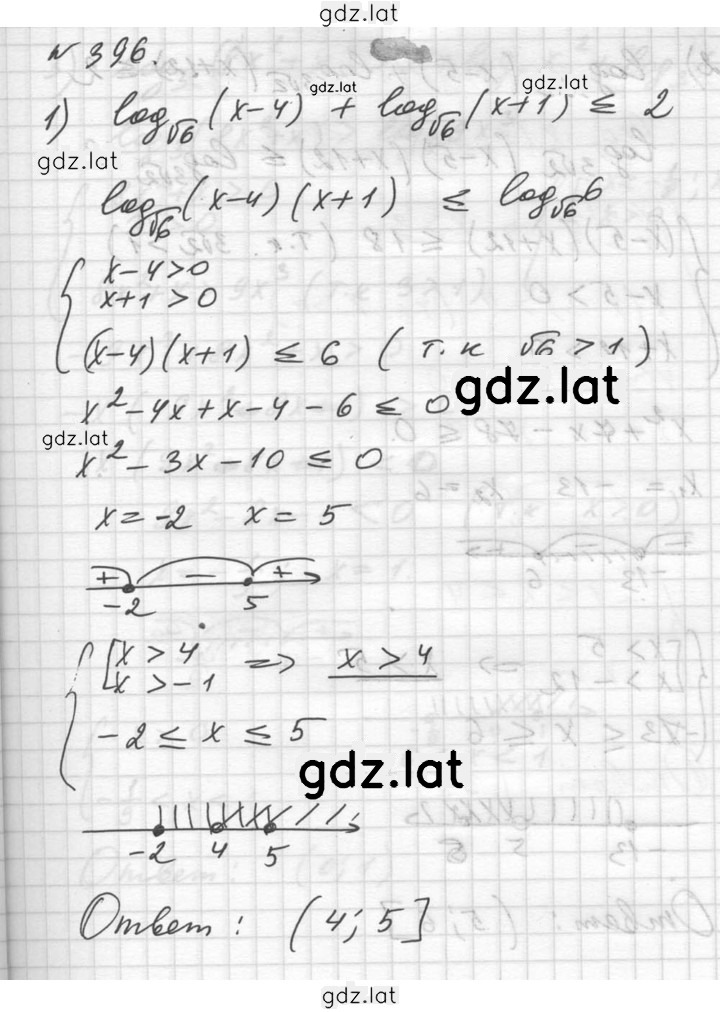 gdz.lat
№ 396.
1) log√6 (x-4) + log√6 (x+1) ≤ 2
gdz.lat
gdz.lat
gdz.lat
log√6 (x-4)(x+1) ≤ log√6 6
{ x-4>0
x+1>0
(x-4)(x+1) ≤ 6 (т.к √6 > 1)
gdz.lat
x²-4x+x-4-6 ≤ 0
gdz.lat
x²-3x-10 ≤ 0
x=-2 x=5
+ - +
-2 5
{ [ x>4 => x>4
x>-1
-2 ≤ x ≤ 5
gdz.lat
-2 4 5
Ответ: (4; 5]
gdz.lat